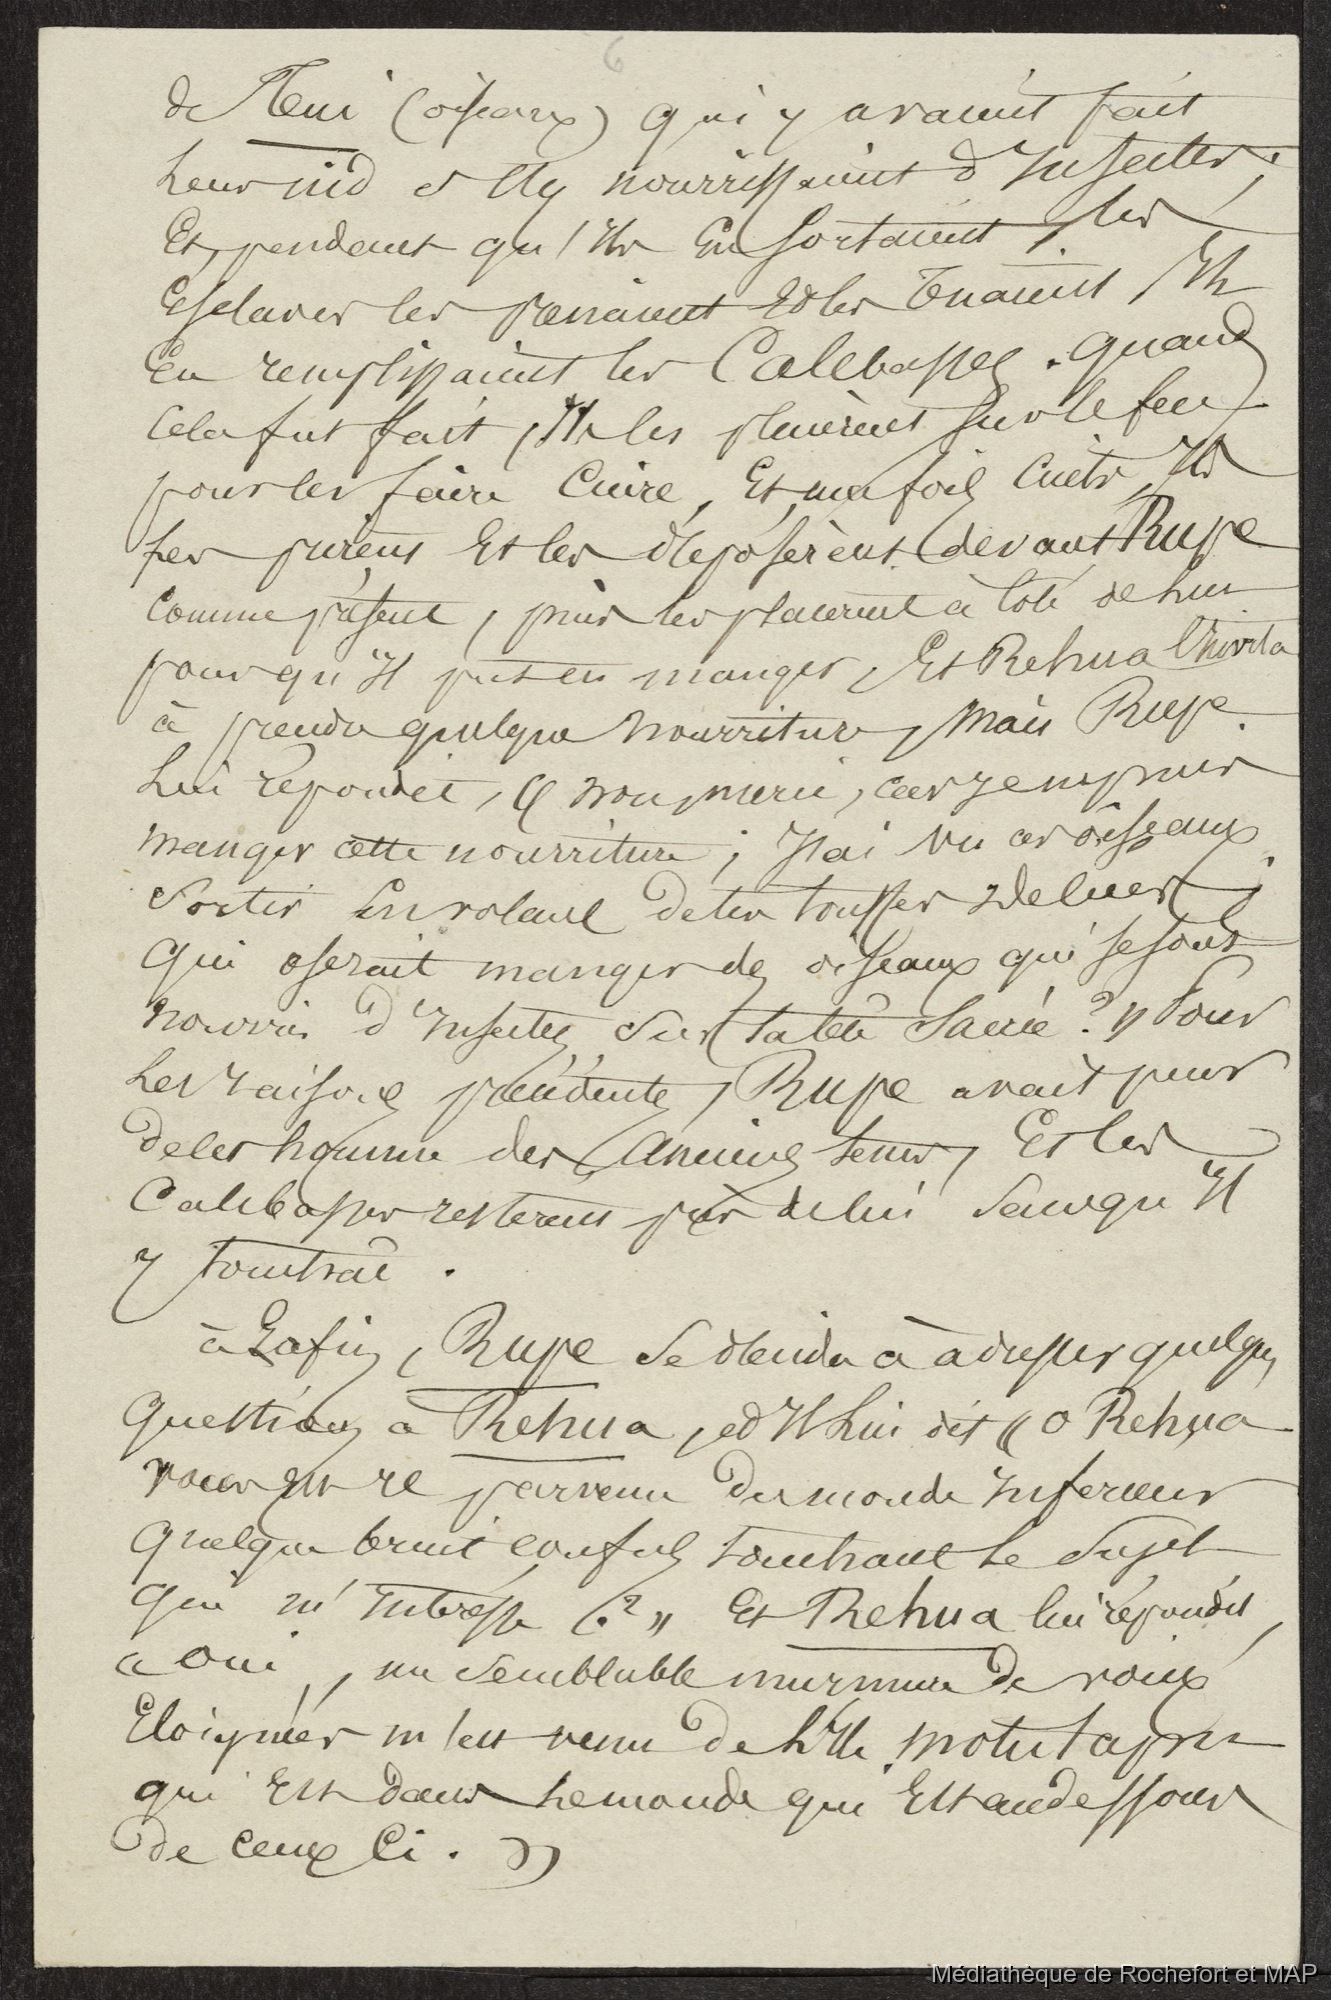 6
de Teui (oiseaux) qui y avaient fait
leur nid et s'y nourrissaient d'insectes,
Et, pendant qu'ils En sortaient, les
Esclaves les prenaient Et les tuaient, Ils
En remplissaient les Calebasses. quand
cela fut fait, Ils les placèrent sur le feu
pour les faire Cuire, Et, une fois Cuits, Ils
les prirent Et les déposèrent devant Rupe
comme présent, puis les placèrent à côté de lui
pour qu'Il put en manger, Et Rehua l'Invita
à prendre quelque nourriture, mais Rupe
lui répondit, « non, merci, car je ne puis
manger cette nourriture ; J'ai vu ces oiseaux
sortir En volant de tes touffes de cheveux ;
qui oserait manger des oiseaux qui se sont
nourris d'Insectes sur ta tête Sacrée ? » Pour
les raisons précédentes, Rupe avait peur
de cet homme des Anciens temps, Et les
Calebasses restèrent près de lui sans qu'Il
y touchat.
à La fin, Rupe se décida à adresser quelques
questions à Rehua, et Il lui dit « O Rehua
vous est-il parvenu du monde Inférieur
quelque bruit confus touchant le Sujet
qui m'Intéresse ? » Et Rehua lui répondit,
« Oui, un semblable murmure de voix
Eloignées m'est venu de l'Ile motutapu
qui Est dans le monde qui Est au dessous
de ceux ci. »
Médiathèque de Rochefort et MAP